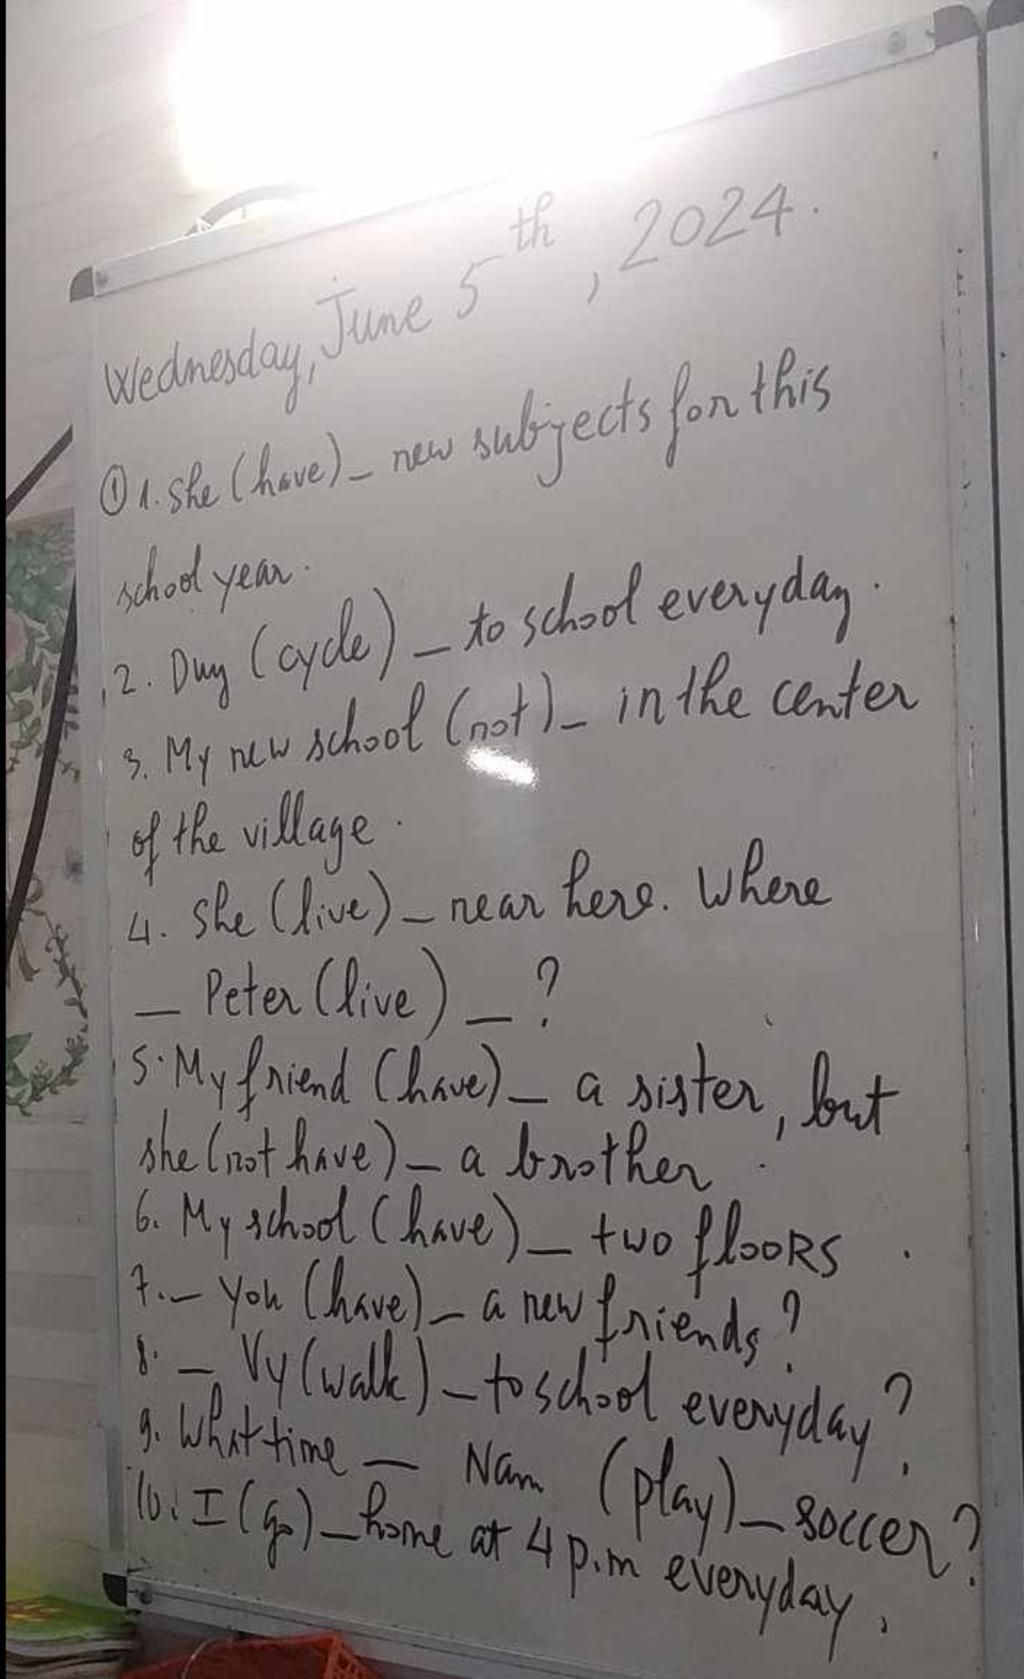 Wednesday, June 5th, 2024.
① 1. She (have) _ new subjects for this
school year.
2. Duy (cycle) _ to school everyday.
3. My new school (not) _ in the center
of the village.
4. She (live) _ near here. Where
_ Peter (live) _ ?
5. My friend (have) _ a sister, but
she (not have) _ a brother.
6. My school (have) _ two flooRs.
7. _ you (have) _ a new friends?
8. _ Vy (walk) _ to school everyday?
9. What time _ Nam (play) _ soccer?
10. I (go) _ home at 4 p.m everyday.